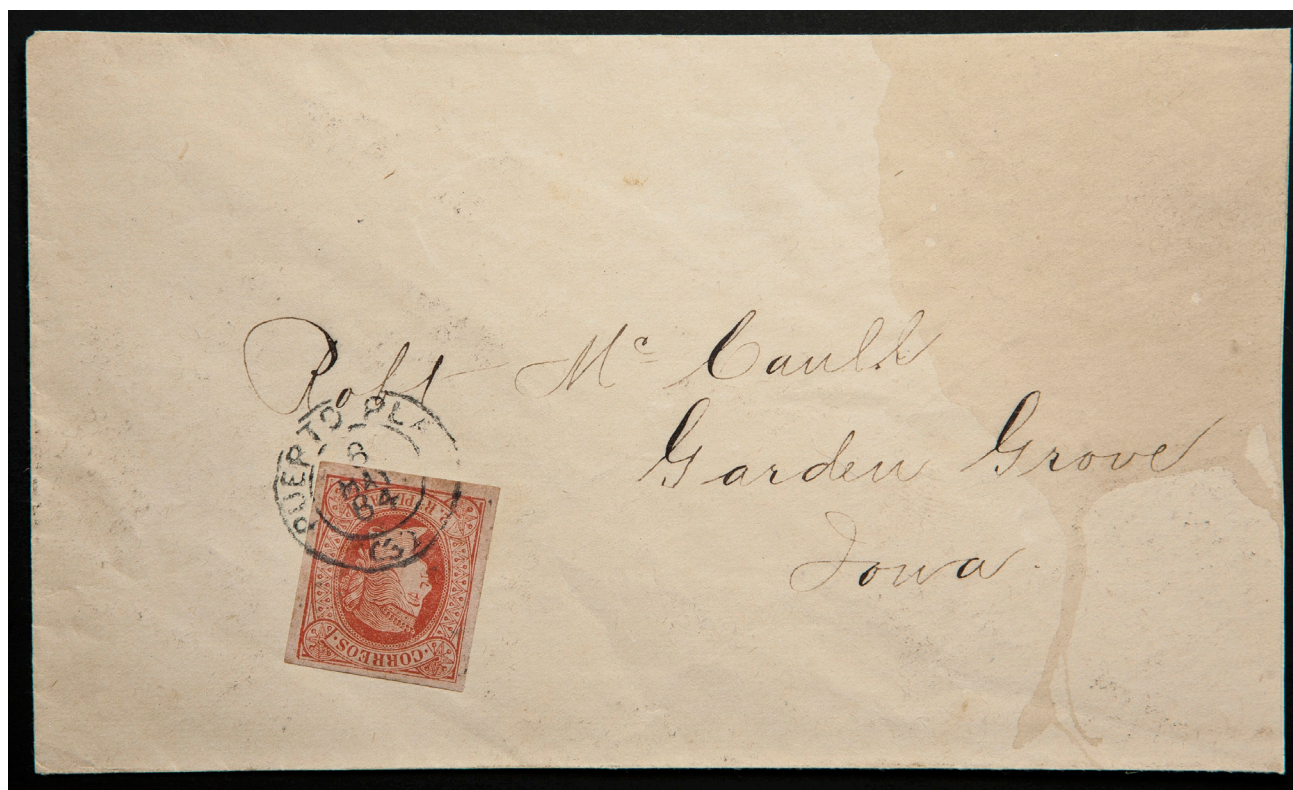 Robt Mc Caull
Garden Grove
Iowa
PUERTO PLA
8
MAI
64
(3)
CORREOS